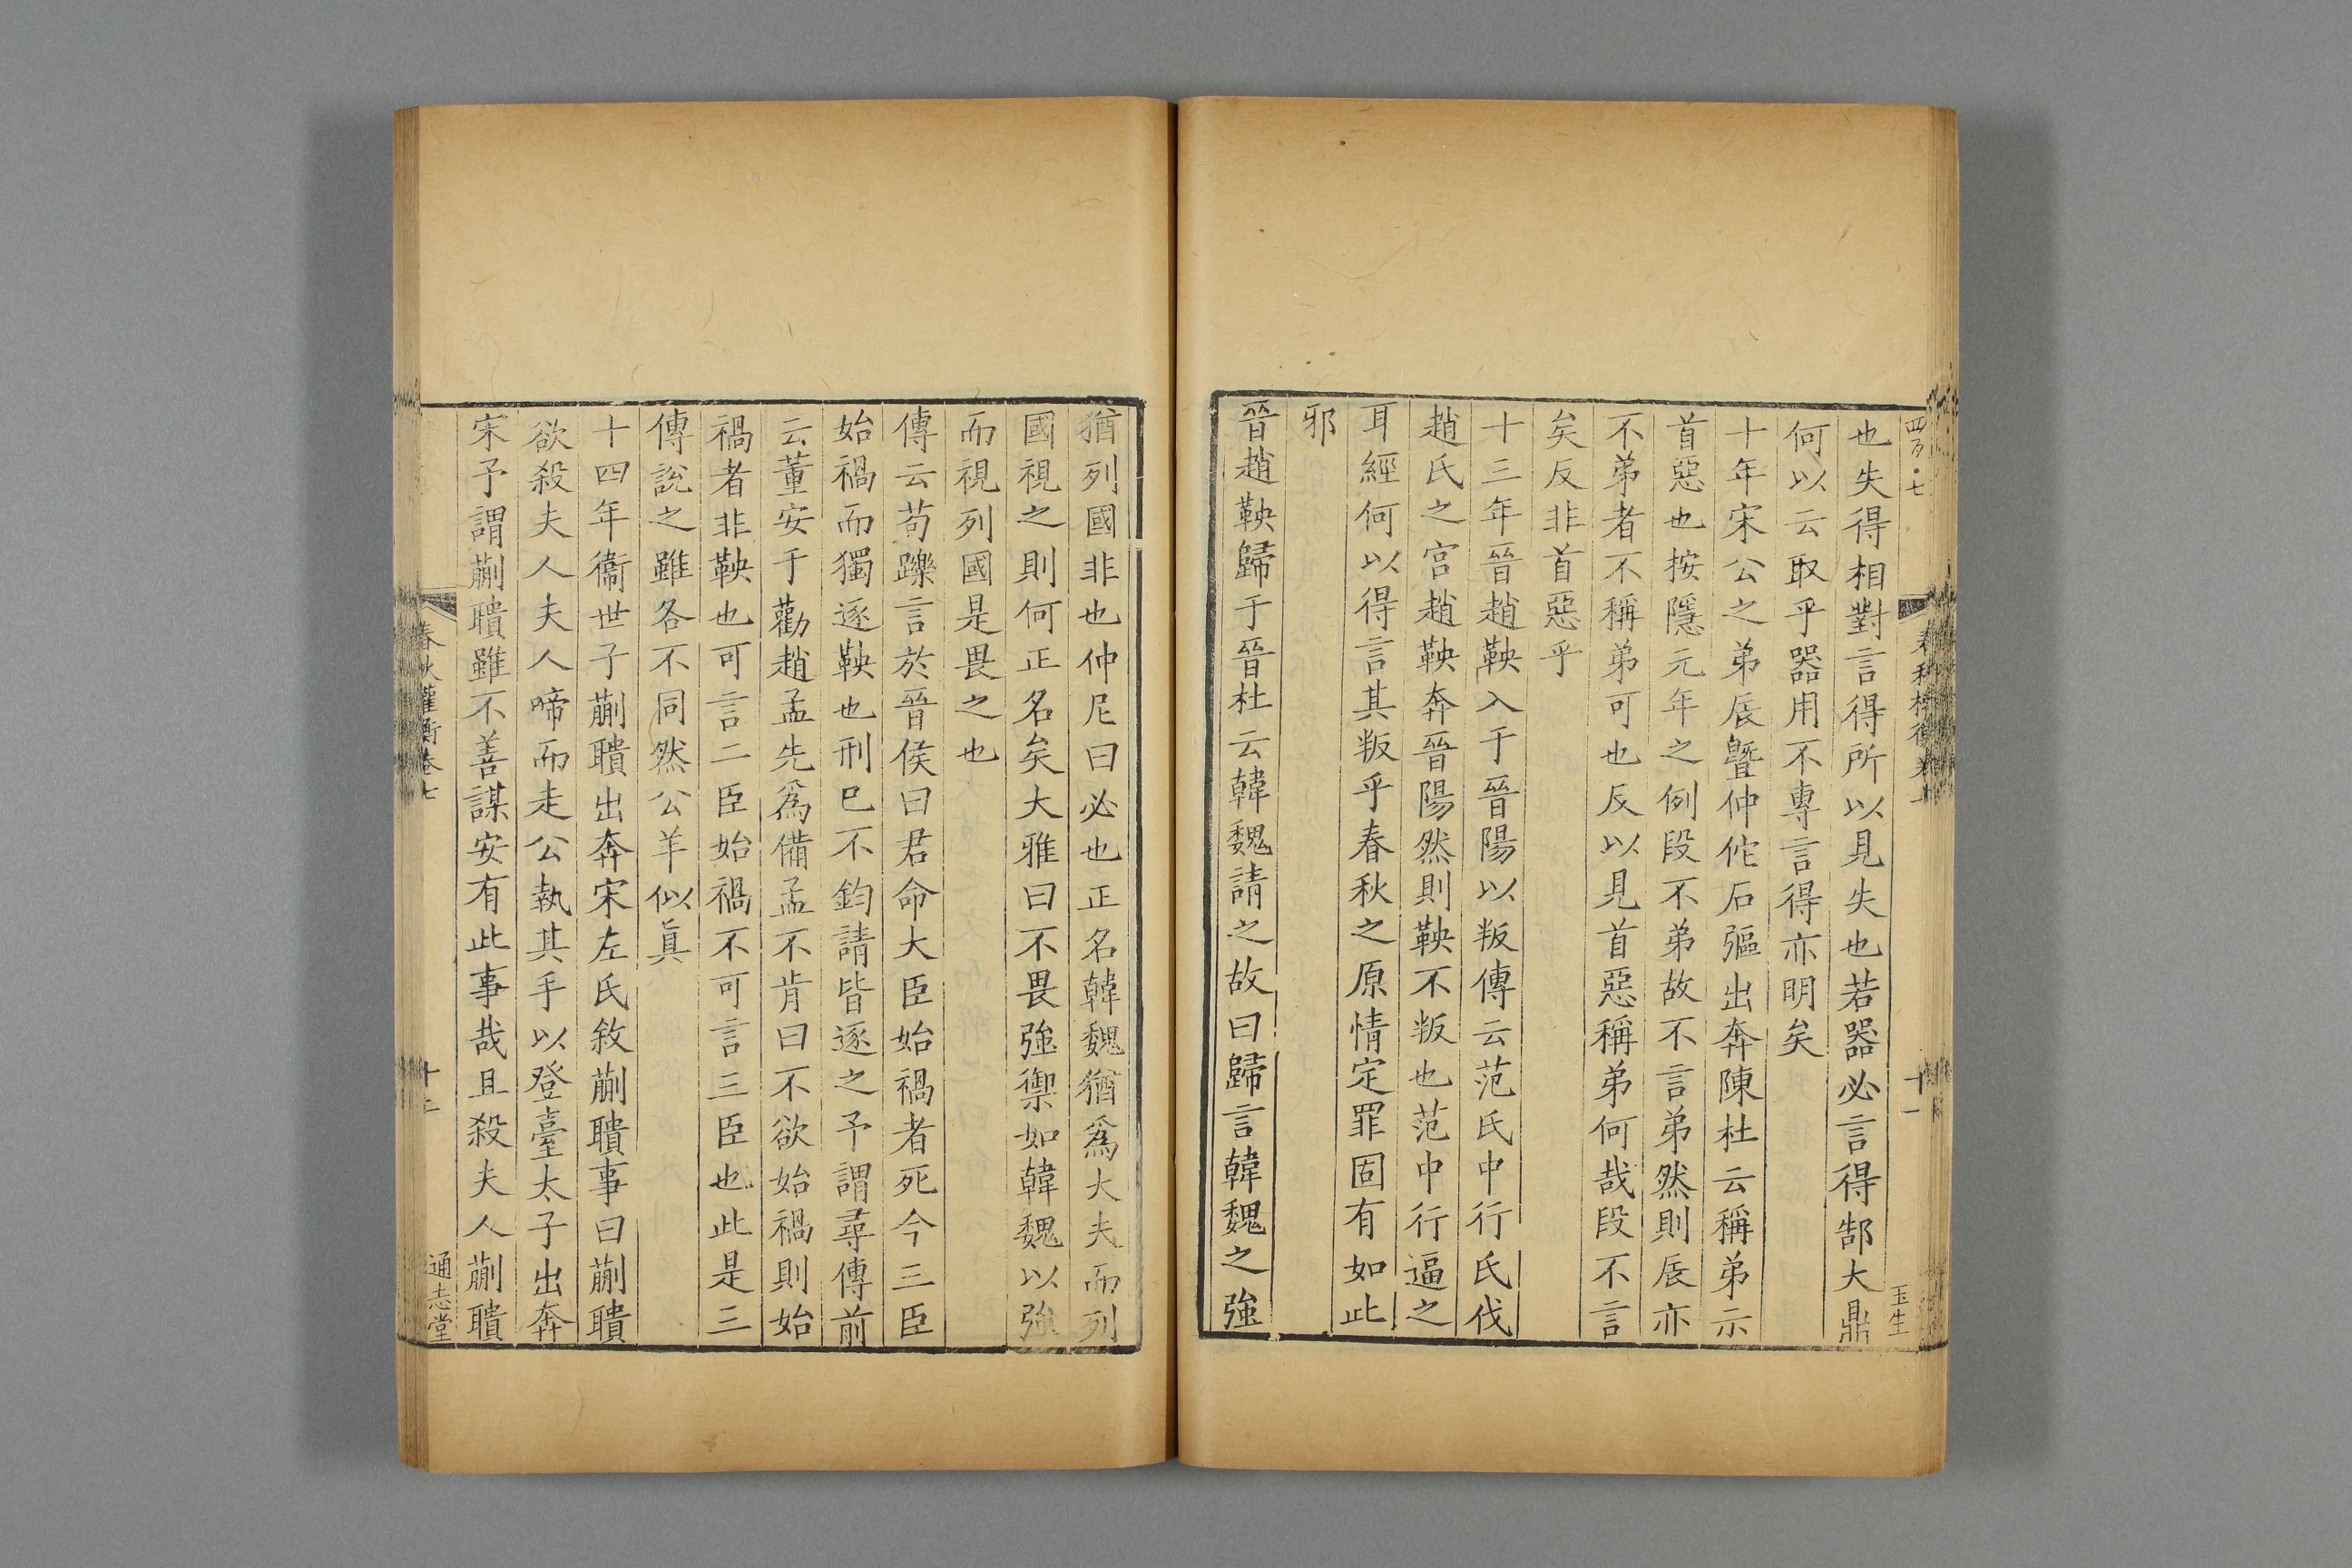 也失得相對言得所以見失也若器必言得郜大鼎
何以云取乎器用不專言得亦明矣
十年宋公之弟辰暨仲佗石彄出奔陳杜云稱弟示
首惡也按隱元年之例段不弟故不言弟然則辰亦
不弟者不稱弟可也反以見首惡稱弟何哉段不言
矣反非首惡乎
十三年晉趙鞅入于晉陽以叛傳云范氏中行氏伐
趙氏之宮趙鞅奔晉陽然則鞅不叛也范中行逼之
耳經何以得言其叛乎春秋之原情定罪固有如此
邪
晉趙鞅歸于晉杜云韓魏請之故曰歸言韓魏之強
猶列國非也仲尼曰必也正名韓魏猶爲大夫而列
國視之則何正名矣大雅曰不畏強禦如韓魏以強
而視列國是畏之也
傳云荀躒言於晉侯曰君命大臣始禍者死今三臣
始禍而獨逐鞅也刑已不鈞請皆逐之予謂尋傳前
云董安于勸趙孟先爲備孟不肯曰不欲始禍則始
禍者非鞅也可言二臣始禍不可言三臣也此是三
傳說之雖各不同然公羊似眞
十四年衞世子蒯聵出奔宋左氏敘蒯聵事曰蒯聵
欲殺夫人夫人啼而走公執其手以登臺太子出奔
宋予謂蒯聵雖不善謀安有此事哉且殺夫人蒯聵
春秋權衡卷七
十二
通志堂
十一
玉生